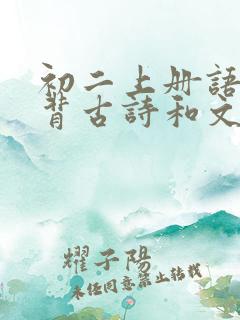 初二上册語
背古詩和文
耀子陽
未经同意禁止转载